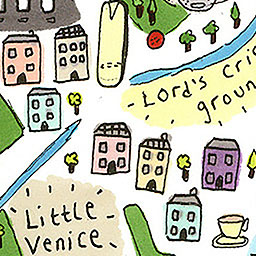 Lord's cri
groun
Little
Venice